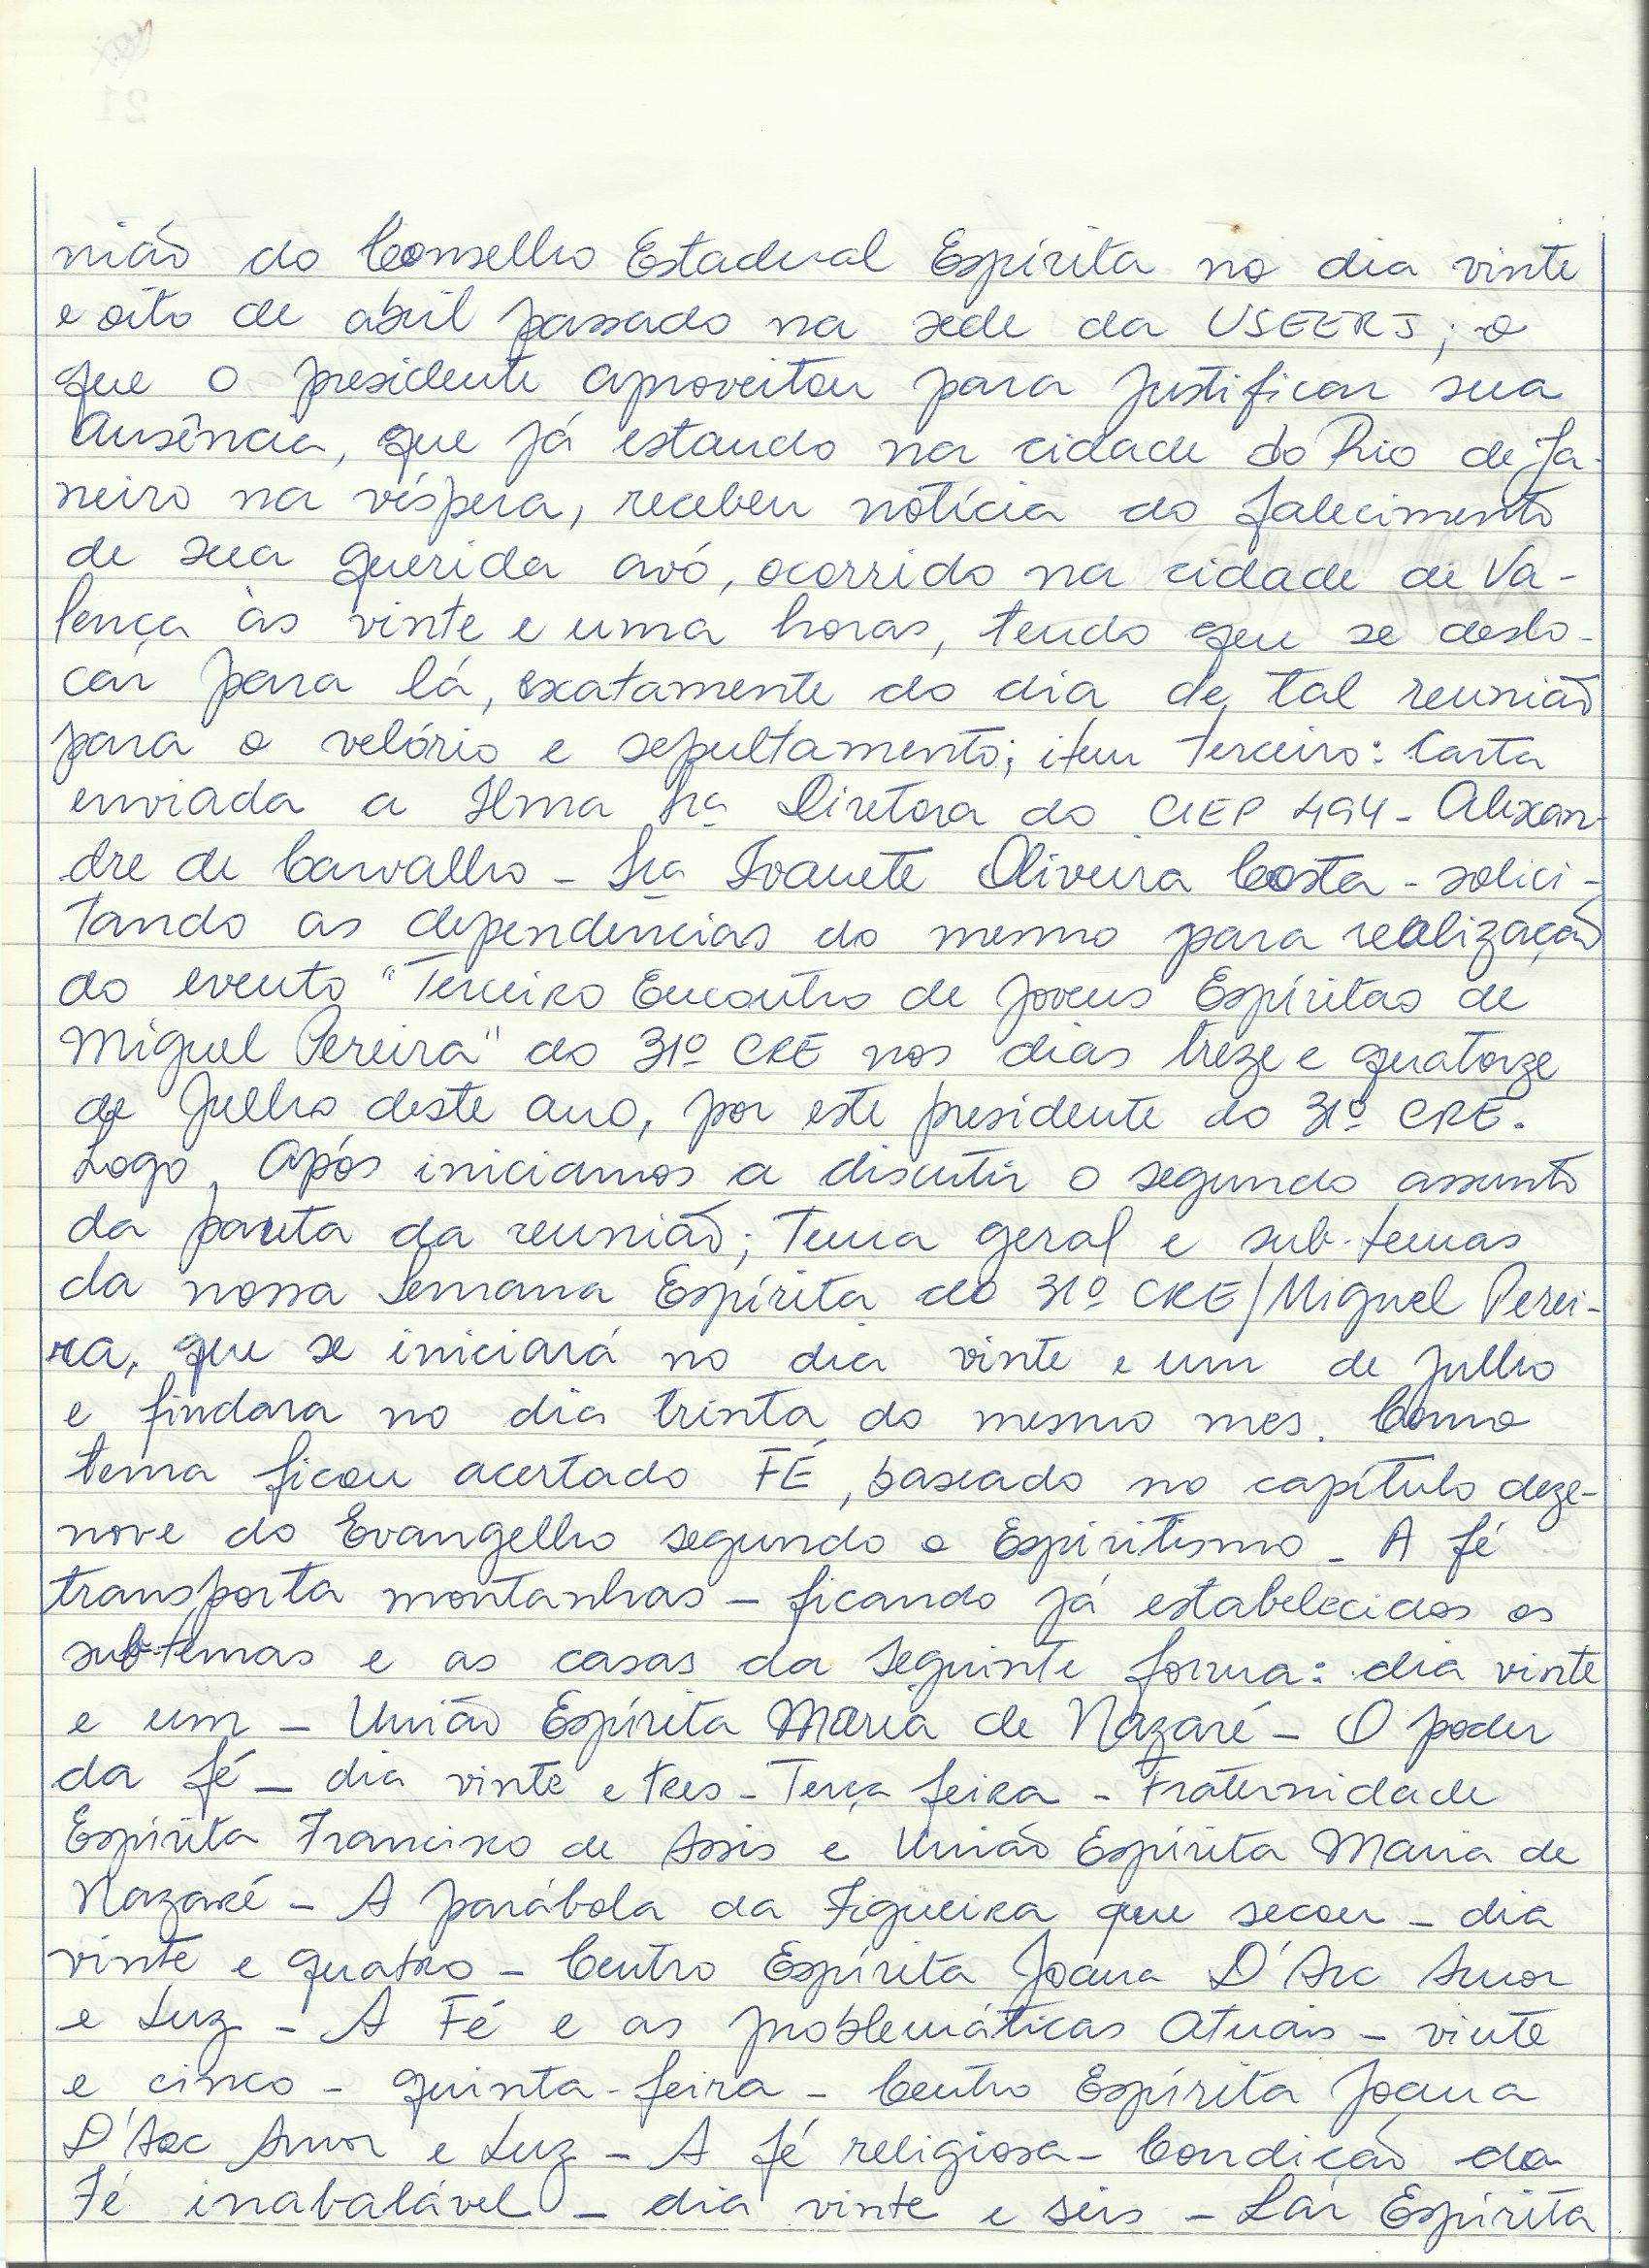 nião do Conselho Estadual Espírita no dia vinte
e oito de abril passado na sede da USEERJ; o
que o presidente aproveitou para justificar sua
ausência, que já estando na cidade do Rio de Ja-
neiro na véspera, recebeu notícia do falecimento
de sua querida avó, ocorrido na cidade de Va-
lença às vinte e uma horas, tendo que se deslo-
car para lá, exatamente do dia de tal reunião
para o velório e sepultamento; item terceiro: Carta
enviada a Ilma Sra Diretora do CIEP 494 - Alexan-
dre de Carvalho - Sra Ivanete Oliveira Costa - solici-
tando as dependências do mesmo para realização
do evento "Terceiro Encontro de Jovens Espíritas de
Miguel Pereira" do 31º CRE nos dias treze e quatorze
de Julho deste ano, por este presidente do 31º CRE.
Logo após iniciamos a discutir o segundo assunto
da pauta da reunião; Tema geral e sub-temas
da nossa Semana Espírita do 31º CRE/Miguel Perei-
ra, que se iniciará no dia vinte e um de Julho
e findara no dia trinta do mesmo mes. Como
tema ficou acertado FÉ, baseado no capítulo deze-
nove do Evangelho segundo o Espiritismo - A fé
transporta montanhas - ficando já estabelecidos os
sub-temas e as casas da seguinte forma: dia vinte
e um - União Espírita Maria de Nazaré - O poder
da fé - dia vinte e tres - Terça feira - Fraternidade
Espírita Francisco de Assis e União Espírita Maria de
Nazaré - A parábola da Figueira que secou - dia
vinte e quatro - Centro Espírita Joana D'Arc Amor
e Luz - A Fé e as problemáticas atuais - vinte
e cinco - quinta-feira - Centro Espírita Joana
D'Arc Amor e Luz - A fé religiosa - Condição da
Fé inabalável - dia vinte e seis - Lar Espírita